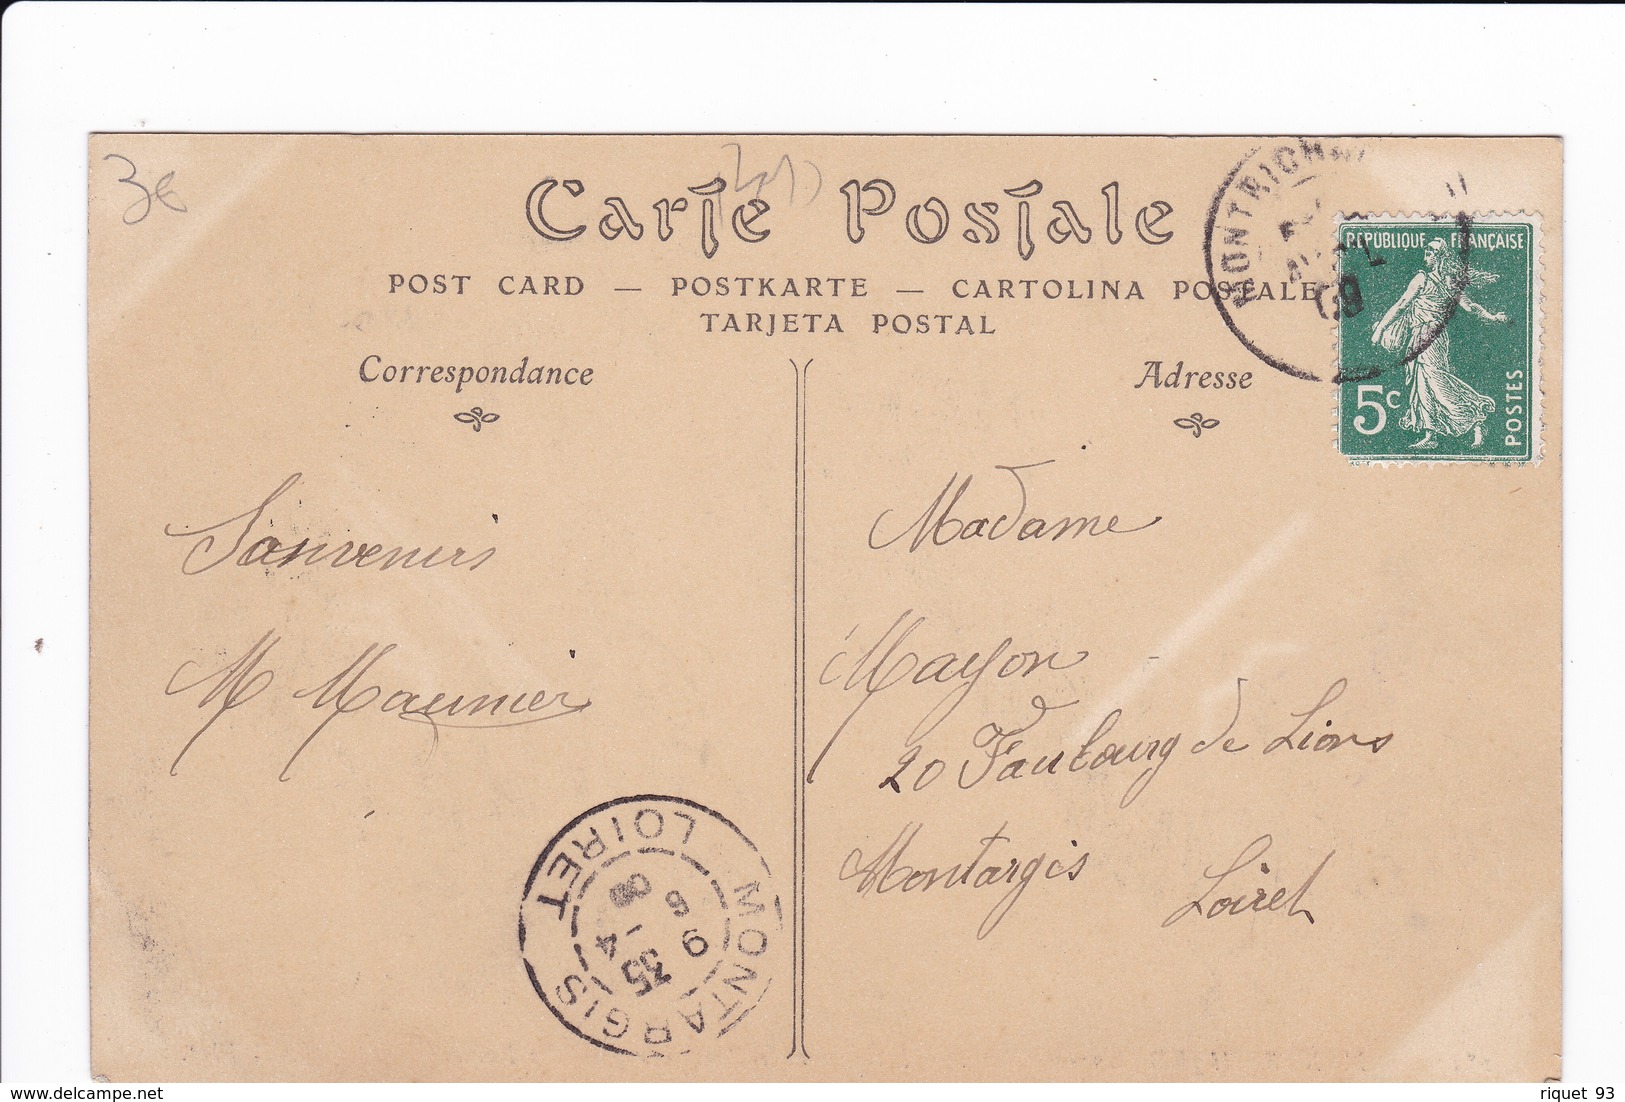 3€
Carte Postale
POST CARD — POSTKARTE — CARTOLINA POSTALE
TARJETA POSTAL
MONTRICHA
09
REPUBLIQUE FRANÇAISE
5c
POSTES
Correspondance
Adresse
Souvenirs
M Maunier
Madame
Mayson
20 Faubourg de Lions
Montargis
Loiret
MONTARGIS
LOIRET
9 35
6 -4
09
delcampe.net
riquet 93